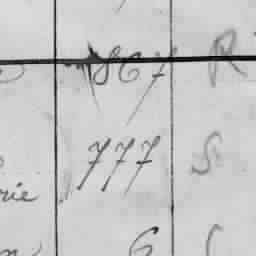 867 R
777 S
rie
6